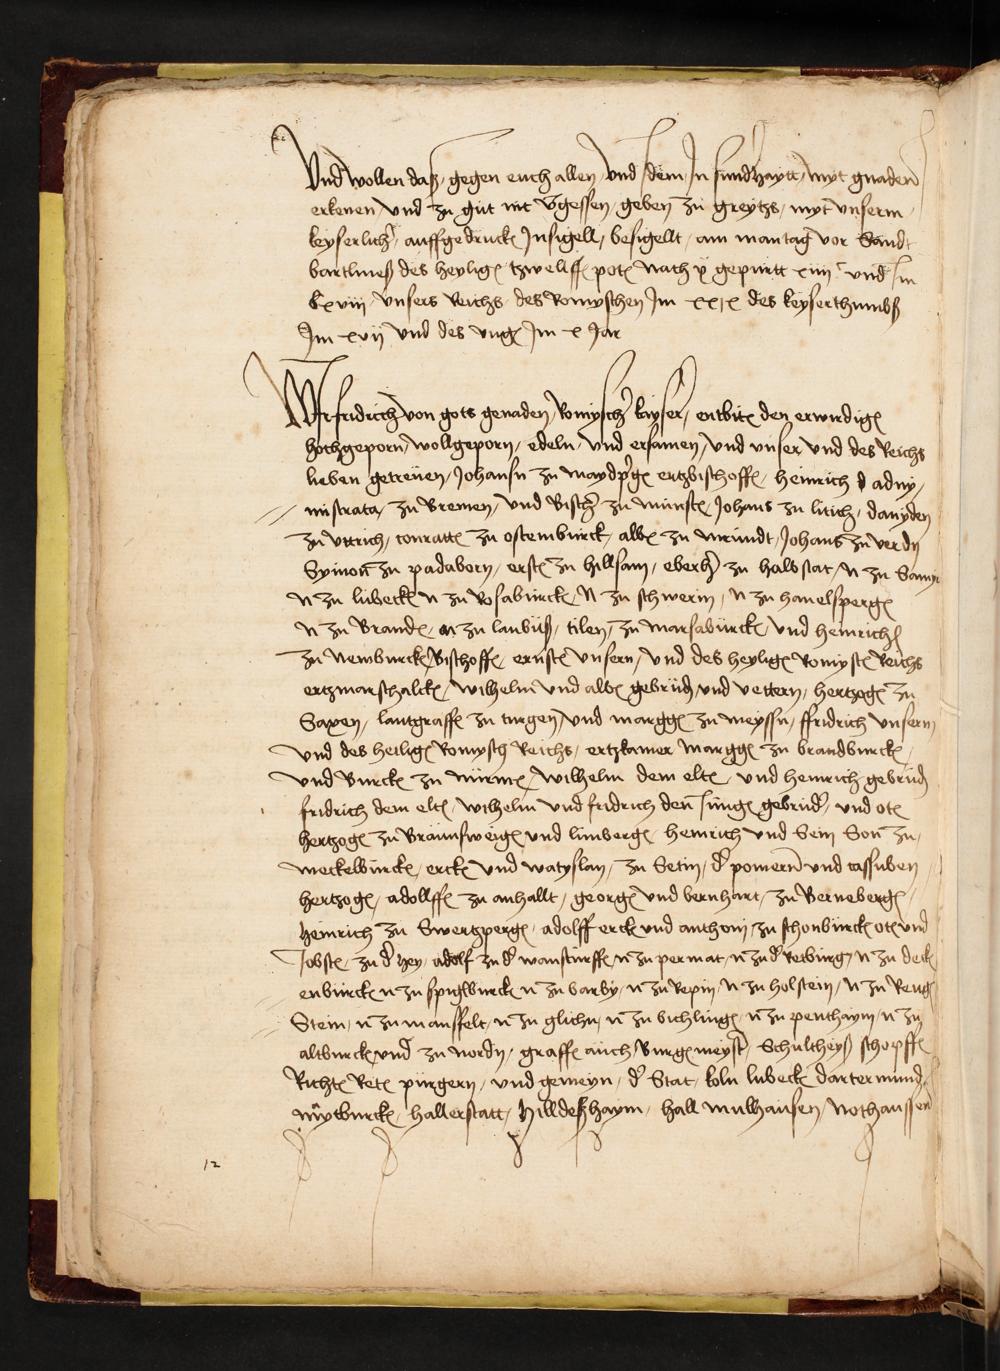 Und wollen daß gegen euch allen und dem In sundhaytt myt gnaden
erkenen und zu gut nit vgessen geben zu greytzs myt unserm
keyserlich auffgedruck Insigell besigellt am mantag vor Sandt
bartlmeß des heylig tzweliff pote nach gepurtt xiiij und Im
lxviij unsers Reichs des Romyschen Im xxix des keyserthumbß
Im xvij und des ung Im x Jar
Wir fridrich von gots genaden Romysch keyser entbite den erwirdig
hochgeporn wollgeporn edeln und ersamen und unser und des Reichs
lieben getreuen Johansn zu maydpg ertzbischoffe heinrich adny
nistrata zu Bremen und Bisch zu munste Johans zu litich
zu uttrich conratte zu ostemburck albe zu mrundt Johans zu verdn
Symon zu padaborn erste zu hillsam eberh zu halbstat N zu Samy
N zu lubeck N zu Rosaburck N zu schwerin N zu hauelsperg
N zu Brande N zu laubuß tilen zu marsaburck und heinrich
zu Nemburck Bischoffe ernste unsern und des heylig Romyste Reichs
ertzmarschalck wilhelm und albe gebrud und vettern hertzoge zu
Saxen lantgraffe zu turgen und margg zu meyssn ffridrich unsern
und des heilig Romysch Reichs ertzkamer margg zu brandburck
und Burck zu nurme wilhelm dem elte und heinrich gebrud
fridrich dem elte wilhelm und fridrich den Junge gebrud und ote
hertzoge zu Braunsweige und lunberge heinrich und Sein Son zu
meckelburck erck und watyslan zu Setin d pomern und cassuben
hertzoge adollffe zu anhallt georg und bernhart zu Berneberge
heinrich zu Swertzperge adolff erck und anthoni zu schonburck ote und
Jobste zu d hey adolf zu d wansturffe n zu permat n zu d Retburg n zu deck
enburck n zu spiglburck n zu barby n zu Repin n zu holstein n zu Reng
Stein n zu manffelt n zu glichn n zu bichlinge n zu penthaym n zu
altburck und zu nordn graffe auch Burgemeyst Schultheyß schopffe
Richte Rete purgern und gemeyn d Stat koln lubeck dartermund
mytburck hallerstatt hilldeßhaym hall mulhausen Nothaussen
12